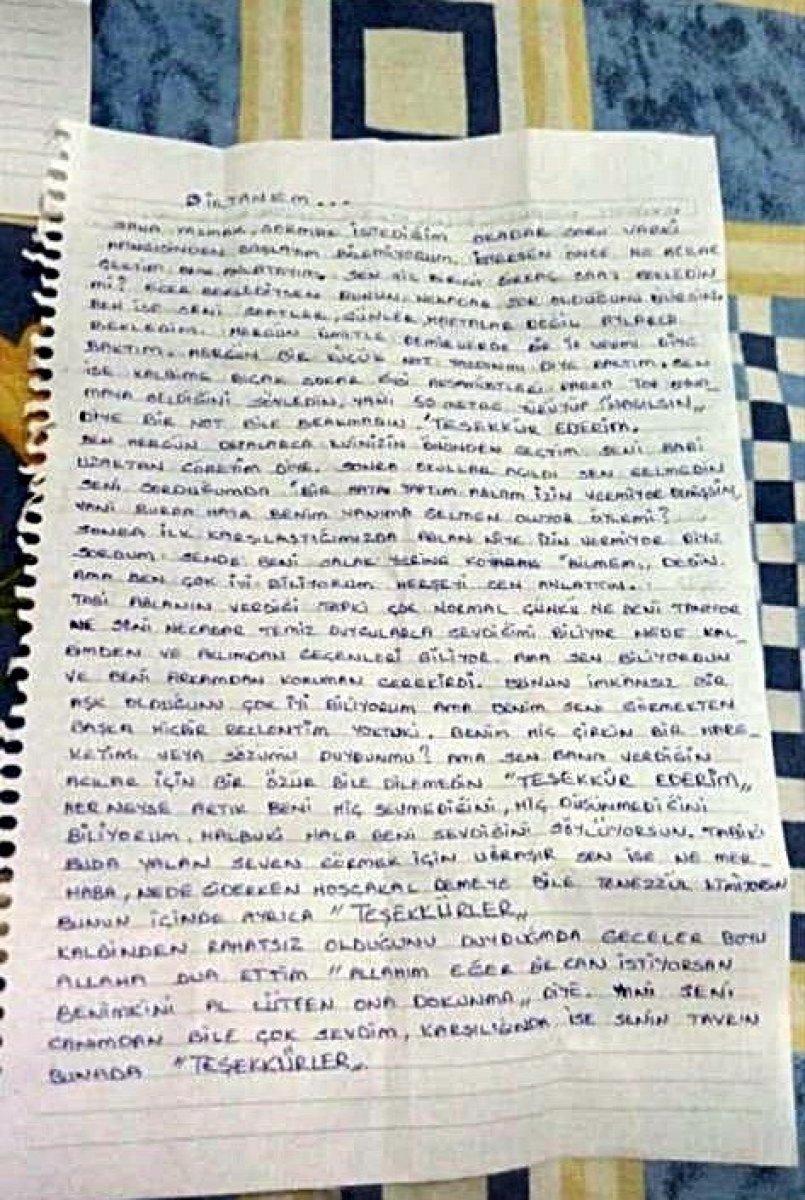 BİRTANEM...
SANA YAZMAK, SORMAK İSTEDİĞİM OKADAR SORU VARKİ
HANGİSİNDEN BAŞLAYIM BİLEMİYORUM. İSTERSEN ÖNCE NE ACILAR
ÇEKTİM ONU ANLATAYIM. SEN HİÇ BİRİNİ BİRKAÇ SAAT BEKLEDİN
Mİ? EĞER BEKLEDİYSEN BUNUN NEKADAR ZOR OLDUĞUNU BİLİRSİN.
BEN İSE SENİ SAATLER, GÜNLER, HAFTALAR DEĞİL AYLARCA
BEKLEDİM. HERGÜN ÜMİTLE DEMİRLERDE BİR İP VARMI DİYE
BAKTIM. HERGÜN BİR KÜÇÜK NOT YAZDINMI DİYE BAKTIM. SEN
İSE KALBİME BIÇAK SOKAR GİBİ TOP OYNA-
MAYA GELDİĞİNİ SÖYLEDİN, YANİ 50 METRE YÜRÜYÜP "NASILSIN,,
DİYE BİR NOT BİLE BIRAKMADIN. "TEŞEKKÜR EDERİM.
BEN HERGÜN DEFALARCA EVİNİZİN ÖNÜNDEN GEÇTİM SENİ BARİ
UZAKTAN GÖREYİM DİYE. SONRA OKULLAR AÇILDI SEN GELMEDİN
SENİ SORDUĞUMDA "BİR HATA YAPTIM ABLAM İZİN VERMİYOR DEMİŞSİN,
YANİ BURDA HATA BENİM YANIMA GELMEN OLUYOR ÖYLEMİ?
SONRA İLK KARŞILAŞTIĞIMIZDA ABLAN NİYE İZİN VERMİYOR DİYE
SORDUM. SENDE BENİ SALAK YERİNE KOYARAK "BİLMEM,, DEDİN.
AMA BEN ÇOK İYİ BİLİYORUM HERŞEYİ SEN ANLATTIN.
TABİ ABLANIN VERDİĞİ TEPKİ ÇOK NORMAL ÇÜNKÜ NE BENİ TANIYOR
NE SENİ NEKADAR TEMİZ DUYGULARLA SEVDİĞİMİ BİLİYOR NEDE KAL-
BİMDEN VE AKLIMDAN GEÇENLERİ BİLİYOR. AMA SEN BİLİYORDUN
VE BENİ ARKAMDAN KORUMAN GEREKİRDİ. BUNUN İMKANSIZ BİR
AŞK OLDUĞUNU ÇOK İYİ BİLİYORUM AMA BENİM SENİ GÖRMEKTEN
BAŞKA HİÇBİR BEKLENTİM YOKTUKİ. BENİM HİÇ ÇİRKİN BİR HARE-
KETİMİ VEYA SÖZÜMÜ DUYDUNMU? AMA SEN BANA VERDİĞİN
ACILAR İÇİN BİR ÖZÜR BİLE DİLEMEDİN "TEŞEKKÜR EDERİM,,
HER NEYSE ARTIK BENİ HİÇ SEVMEDİĞİNİ, HİÇ DÜŞÜNMEDİĞİNİ
BİLİYORUM. HALBUKİ HALA BENİ SEVDİĞİNİ SÖYLÜYORSUN. TABİKİ
BUDA YALAN SEVEN GÖRMEK İÇİN UĞRAŞIR SEN İSE NE MER-
HABA, NEDE GİDERKEN HOŞÇAKAL DEMEYE BİLE TENEZZÜL ETMİYORSUN
BUNUN İÇİNDE AYRICA "TEŞEKKÜRLER,,
KALBİNDEN RAHATSIZ OLDUĞUNU DUYDUĞMDA GECELER BOYU
ALLAHA DUA ETTİM "ALLAHIM EĞER BİR CAN İSTİYORSAN
BENİMKİNİ AL LÜTFEN ONA DOKUNMA,, DİYE. YANİ SENİ
CANIMDAN BİLE ÇOK SEVDİM, KARŞILIĞINDA İSE SENİN TAVRIN
BUNADA "TEŞEKKÜRLER,,